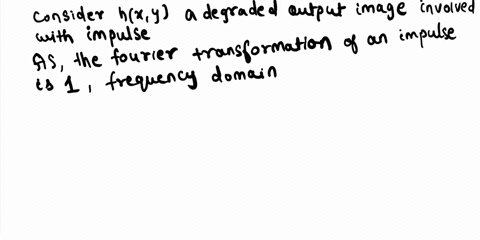 consider h(x,y) a degraded output image involved
with impulse
AS, the fourier transformation of an impulse
is 1, frequency domain